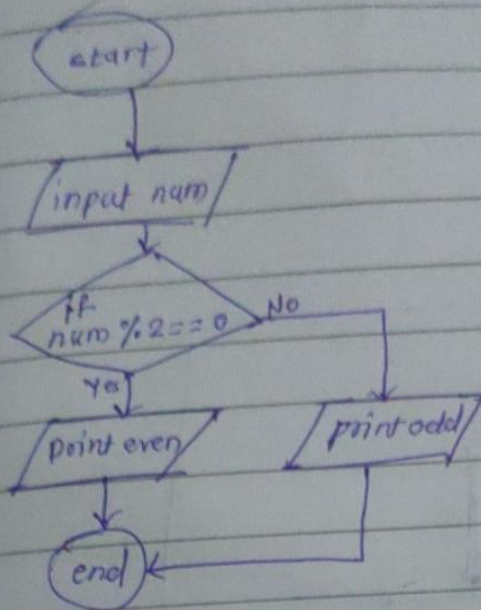 start
input num
if
num % 2 == 0
No
Yes
print even
print odd
end